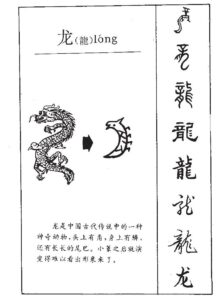 龙(龍)lóng
龙是中国古代传说中的一种
神奇动物,头上有角,身上有鳞,
还有长长的尾巴。小篆之后就演
变得难以看出形象来了。
龍
龍
龍
龙